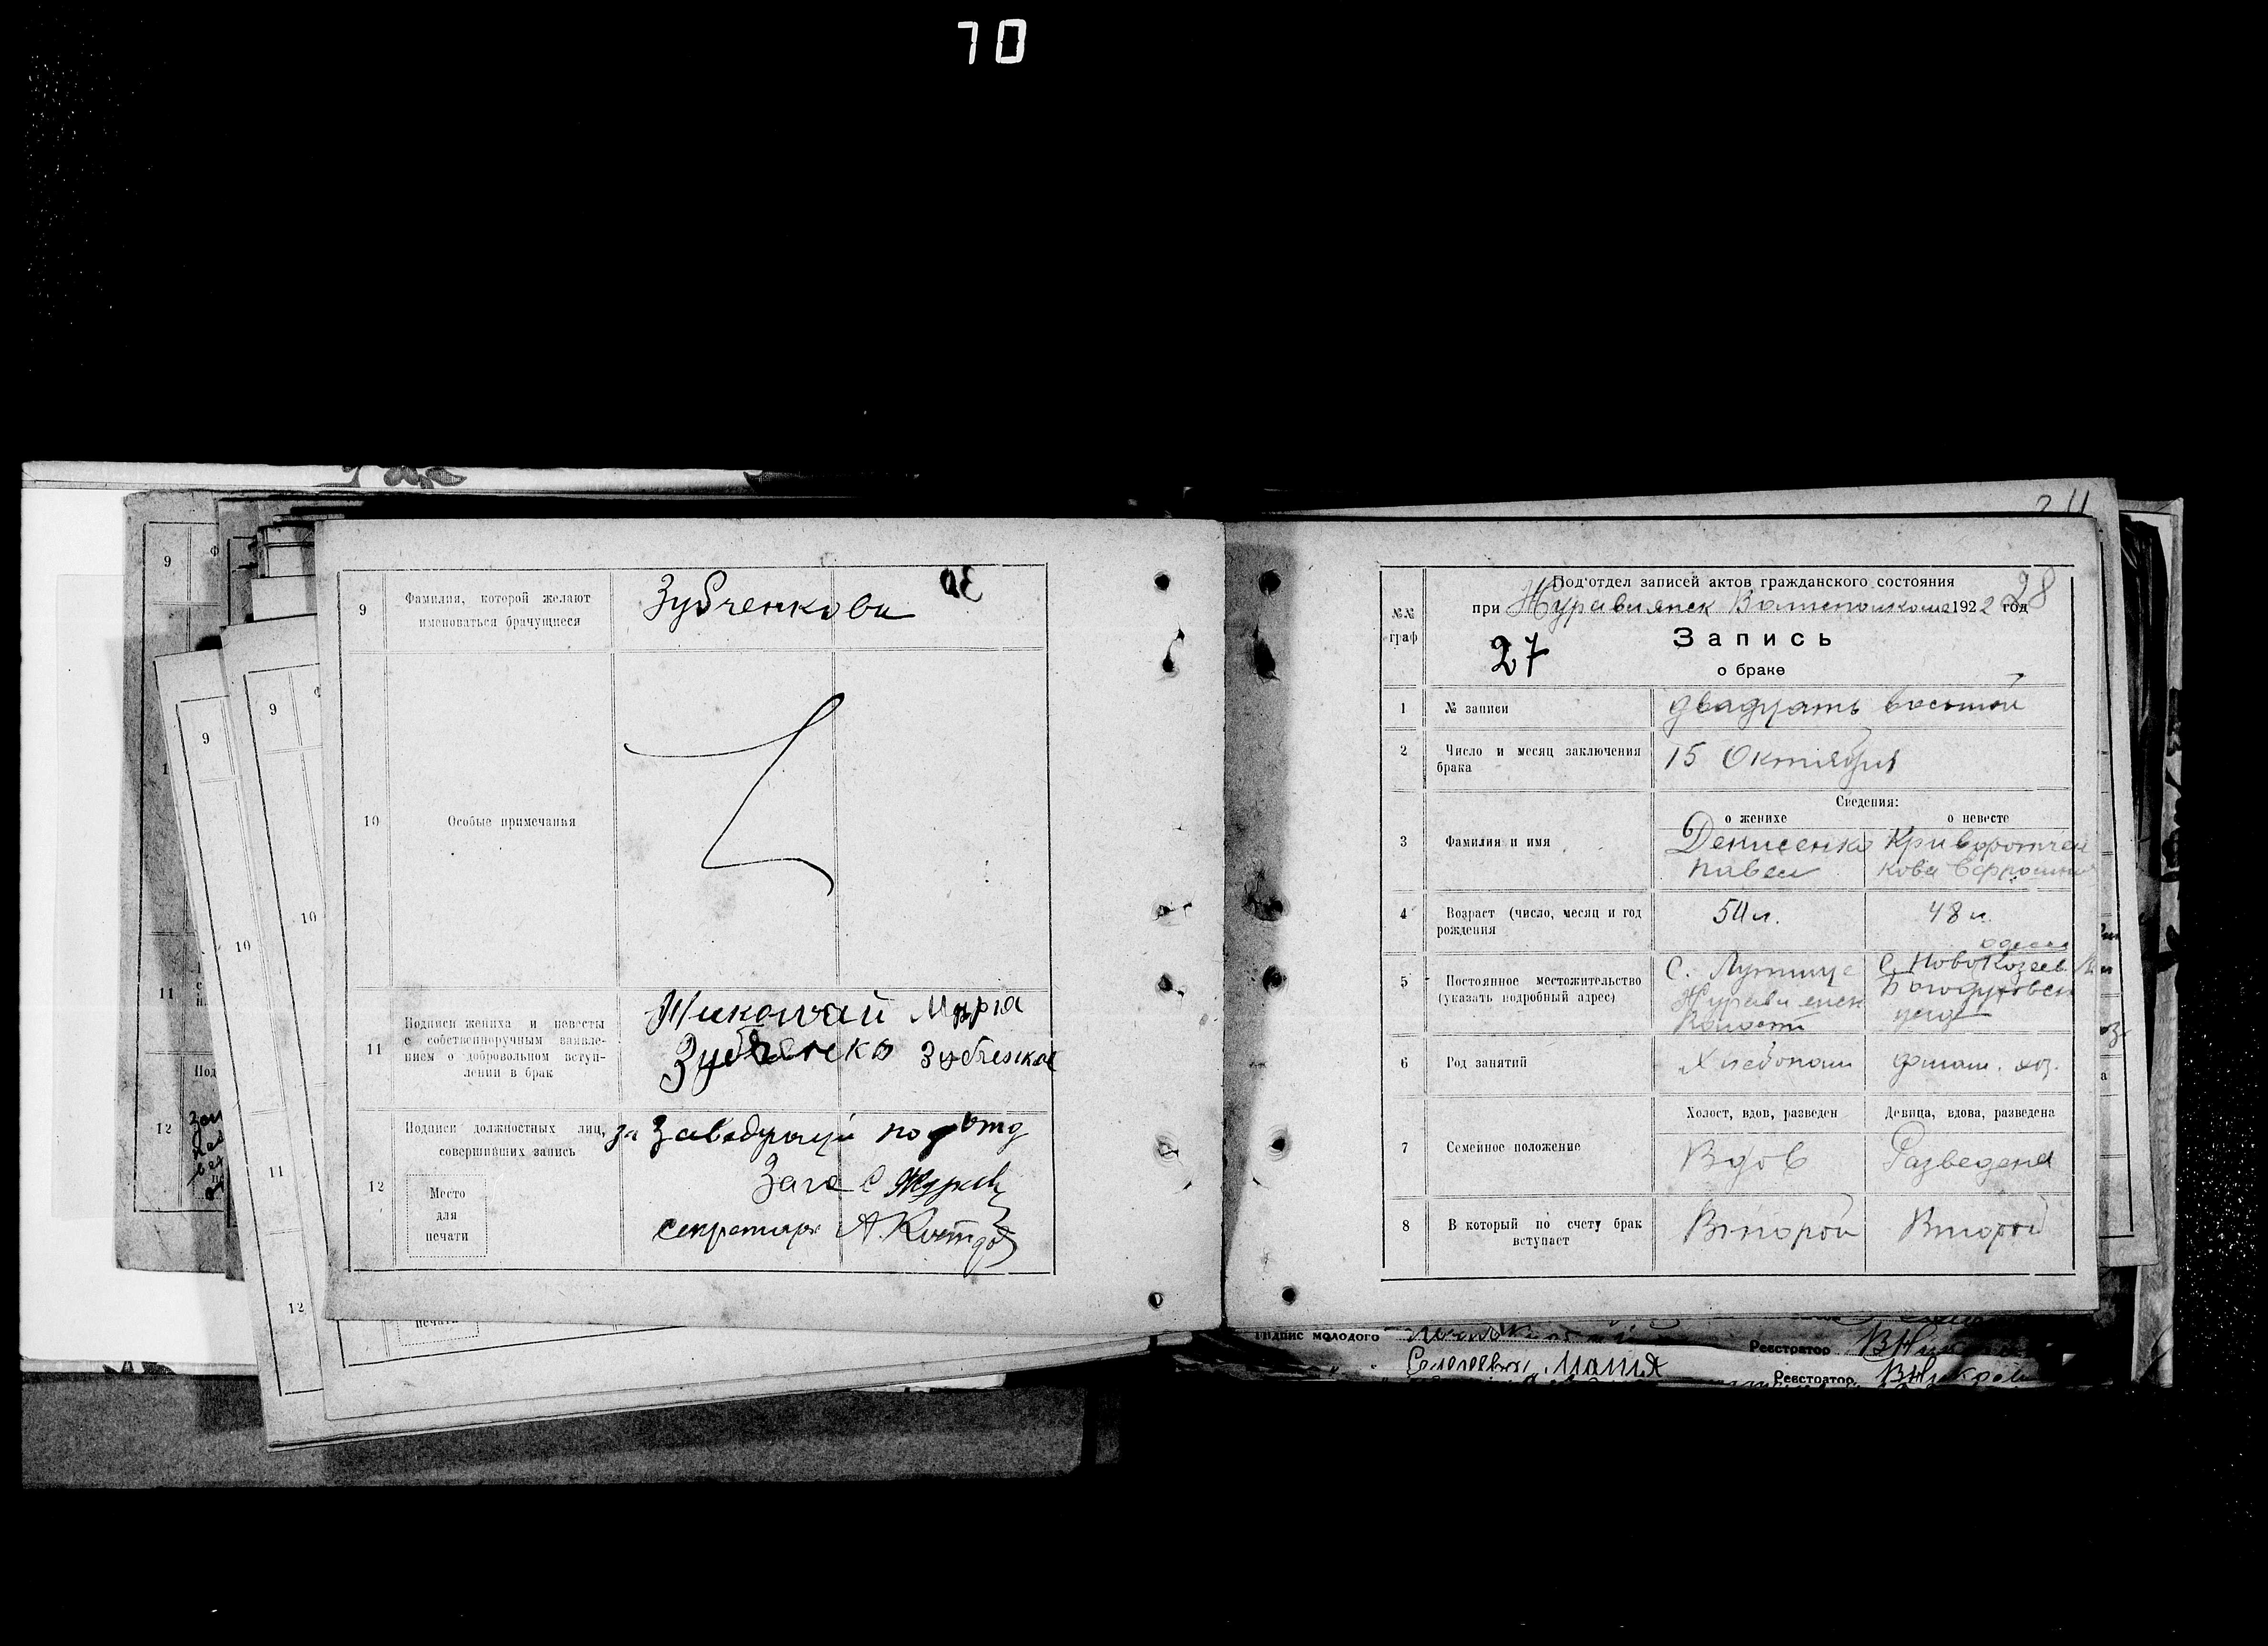 70
9
Фамилия, которой желают
именоваться брачущиеся
Зубченкови
10
Особые примечания
11
Подписи жениха и невесты
с собственноручным заявле-
нием о добровольном вступ-
лении в брак
Николай Мария
Зубченко Зубченкое
12
Подписи должностных лиц,
совершивших запись
Место
для
печати
за Заведующий подотд
Загс
секретарь А.
№№
граф
Под'отдел записей актов гражданского состояния
28
при Журавлянск Волисполкоме 1922 год
27
Запись
о браке
1
№ записи
двадцать восьмой
2
Число и месяц заключения
брака
15 Октября
Сведения:
о женихе
о невесте
3
Фамилия и имя
Денисенко
Павел
Криворотчен
кова Ефросинья
4
Возраст (число, месяц и год
рождения
50 л.
48 л.
5
Постоянное местожительство
(указать подробный адрес)
С.
Журавлянск
Волости
С. Новокозеев
Богодуховск
уезд
6
Род занятий
Хлебопаш
домаш. хоз.
Холост, вдов, разведен
Девица, вдова, разведена
7
Семейное положение
Вдов
Разведена
8
В который по счету брак
вступает
Второй
Второй
Підпис молодого
Реєстратор
Реєстратор
9
9
9
10
10
11
11
12
12
печати